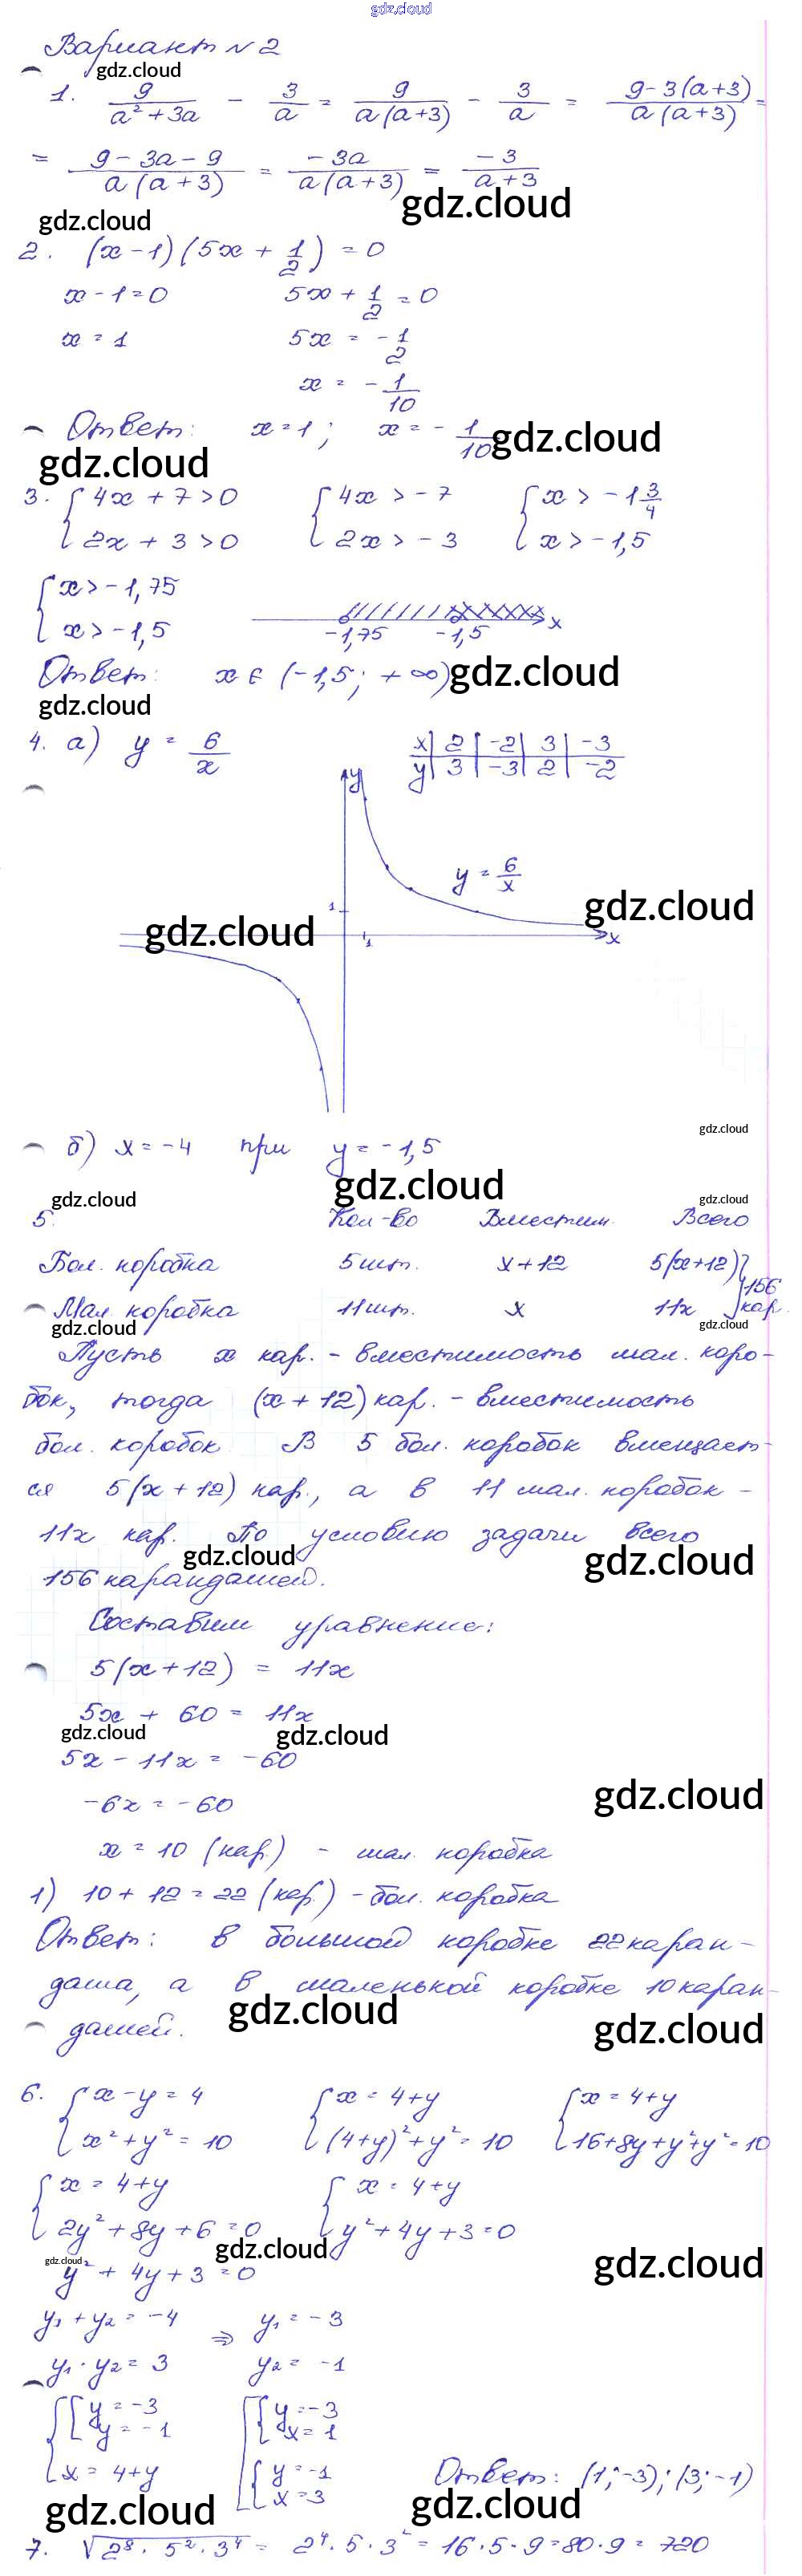 gdz.cloud
Вариант №2
gdz.cloud
1. 9/(a²+3a) - 3/a = 9/(a(a+3)) - 3/a = (9-3(a+3))/(a(a+3)) =
= (9-3a-9)/(a(a+3)) = -3a/(a(a+3)) = -3/(a+3)
gdz.cloud
gdz.cloud
2. (x-1)(5x+1/2) = 0
x-1=0 5x+1/2=0
x=1 5x = -1/2
x = -1/10
Ответ: x=1; x=-1/10
gdz.cloud
gdz.cloud
3. {4x+7>0 {4x>-7 {x>-1 3/4
{2x+3>0 {2x>-3 {x>-1,5
{x>-1,75
{x>-1,5 -1,75 -1,5 x
Ответ: x∈(-1,5; +∞)
gdz.cloud
gdz.cloud
4. а) y = 6/x x|2|-2|3|-3
y|3|-3|2|-2
y
y = 6/x
1
gdz.cloud
gdz.cloud
1 x
gdz.cloud
б) x=-4 при y=-1,5
gdz.cloud
gdz.cloud
gdz.cloud
5. Кол-во Вместим. Всего
Бол. коробка 5 шт. x+12 5(x+12)
Мал. коробка 11 шт. x 11x } 156 кар.
gdz.cloud
gdz.cloud
Пусть x кар. - вместимость мал. коро-
бок, тогда (x+12) кар. - вместимость
бол. коробок. В 5 бол. коробок вмещает-
ся 5(x+12) кар., а в 11 мал. коробок -
11x кар. По условию задачи всего
gdz.cloud
gdz.cloud
156 карандашей.
Составим уравнение:
5(x+12) = 11x
5x + 60 = 11x
gdz.cloud
gdz.cloud
5x - 11x = -60
gdz.cloud
-6x = -60
x = 10 (кар.) - мал. коробка
1) 10+12=22 (кар.) - бол. коробка
Ответ: в большой коробке 22 каран-
даша, а в маленькой коробке 10 каран-
gdz.cloud
gdz.cloud
дашей.
6. {x-y=4 {x=4+y {x=4+y
{x²+y²=10 {(4+y)²+y²=10 {16+8y+y²+y²=10
{x=4+y {x=4+y
{2y²+8y+6=0 {y²+4y+3=0
gdz.cloud
gdz.cloud
gdz.cloud
y²+4y+3=0
y₁+y₂=-4 ⇒ y₁=-3
y₁·y₂=3 y₂=-1
{[y=-3 [{y=-3
y=-1 x=1
x=4+y {y=-1 Ответ: (1;-3); (3;-1)
x=3
gdz.cloud
gdz.cloud
7. √(2⁸·5²·3⁴) = 2⁴·5·3² = 16·5·9=80·9=720